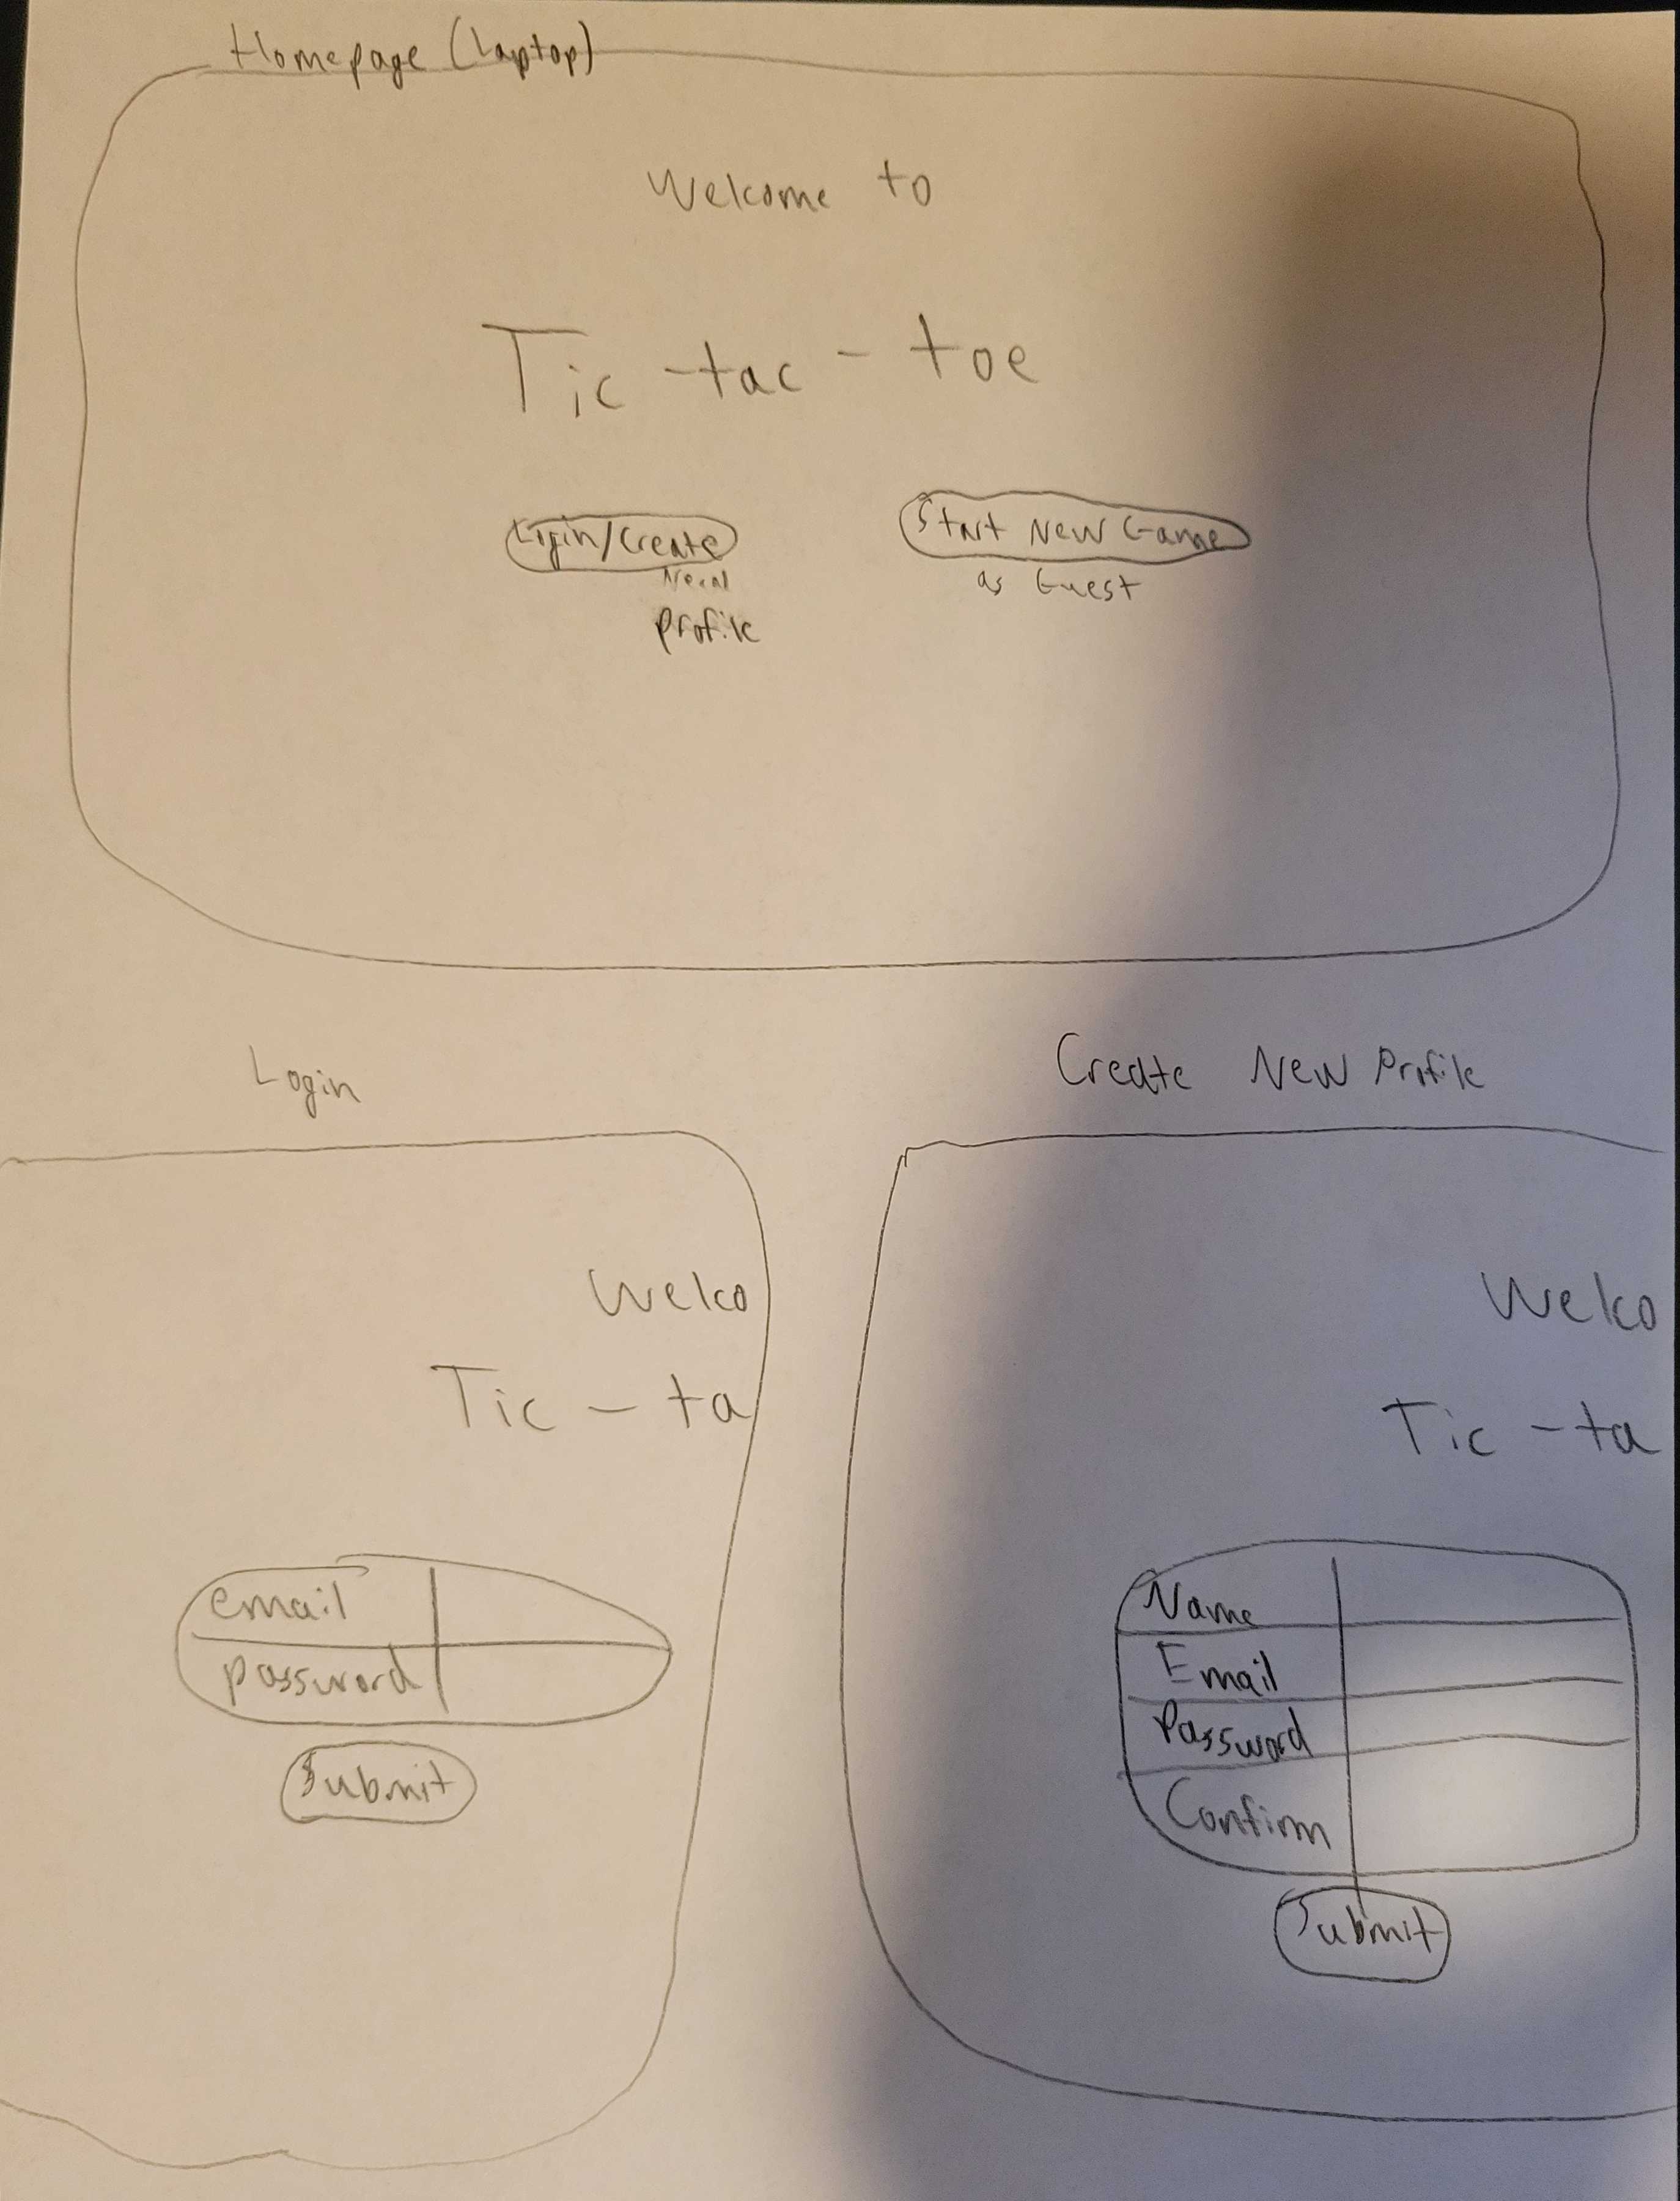 Homepage (Laptop)
Welcome to
Tic-tac-toe
Login/Create
New
Profile
Start New Game
as Guest
Login
Welco
Tic-ta
email
password
Submit
Create New Profile
Welco
Tic-ta
Name
Email
Password
Confirm
Submit